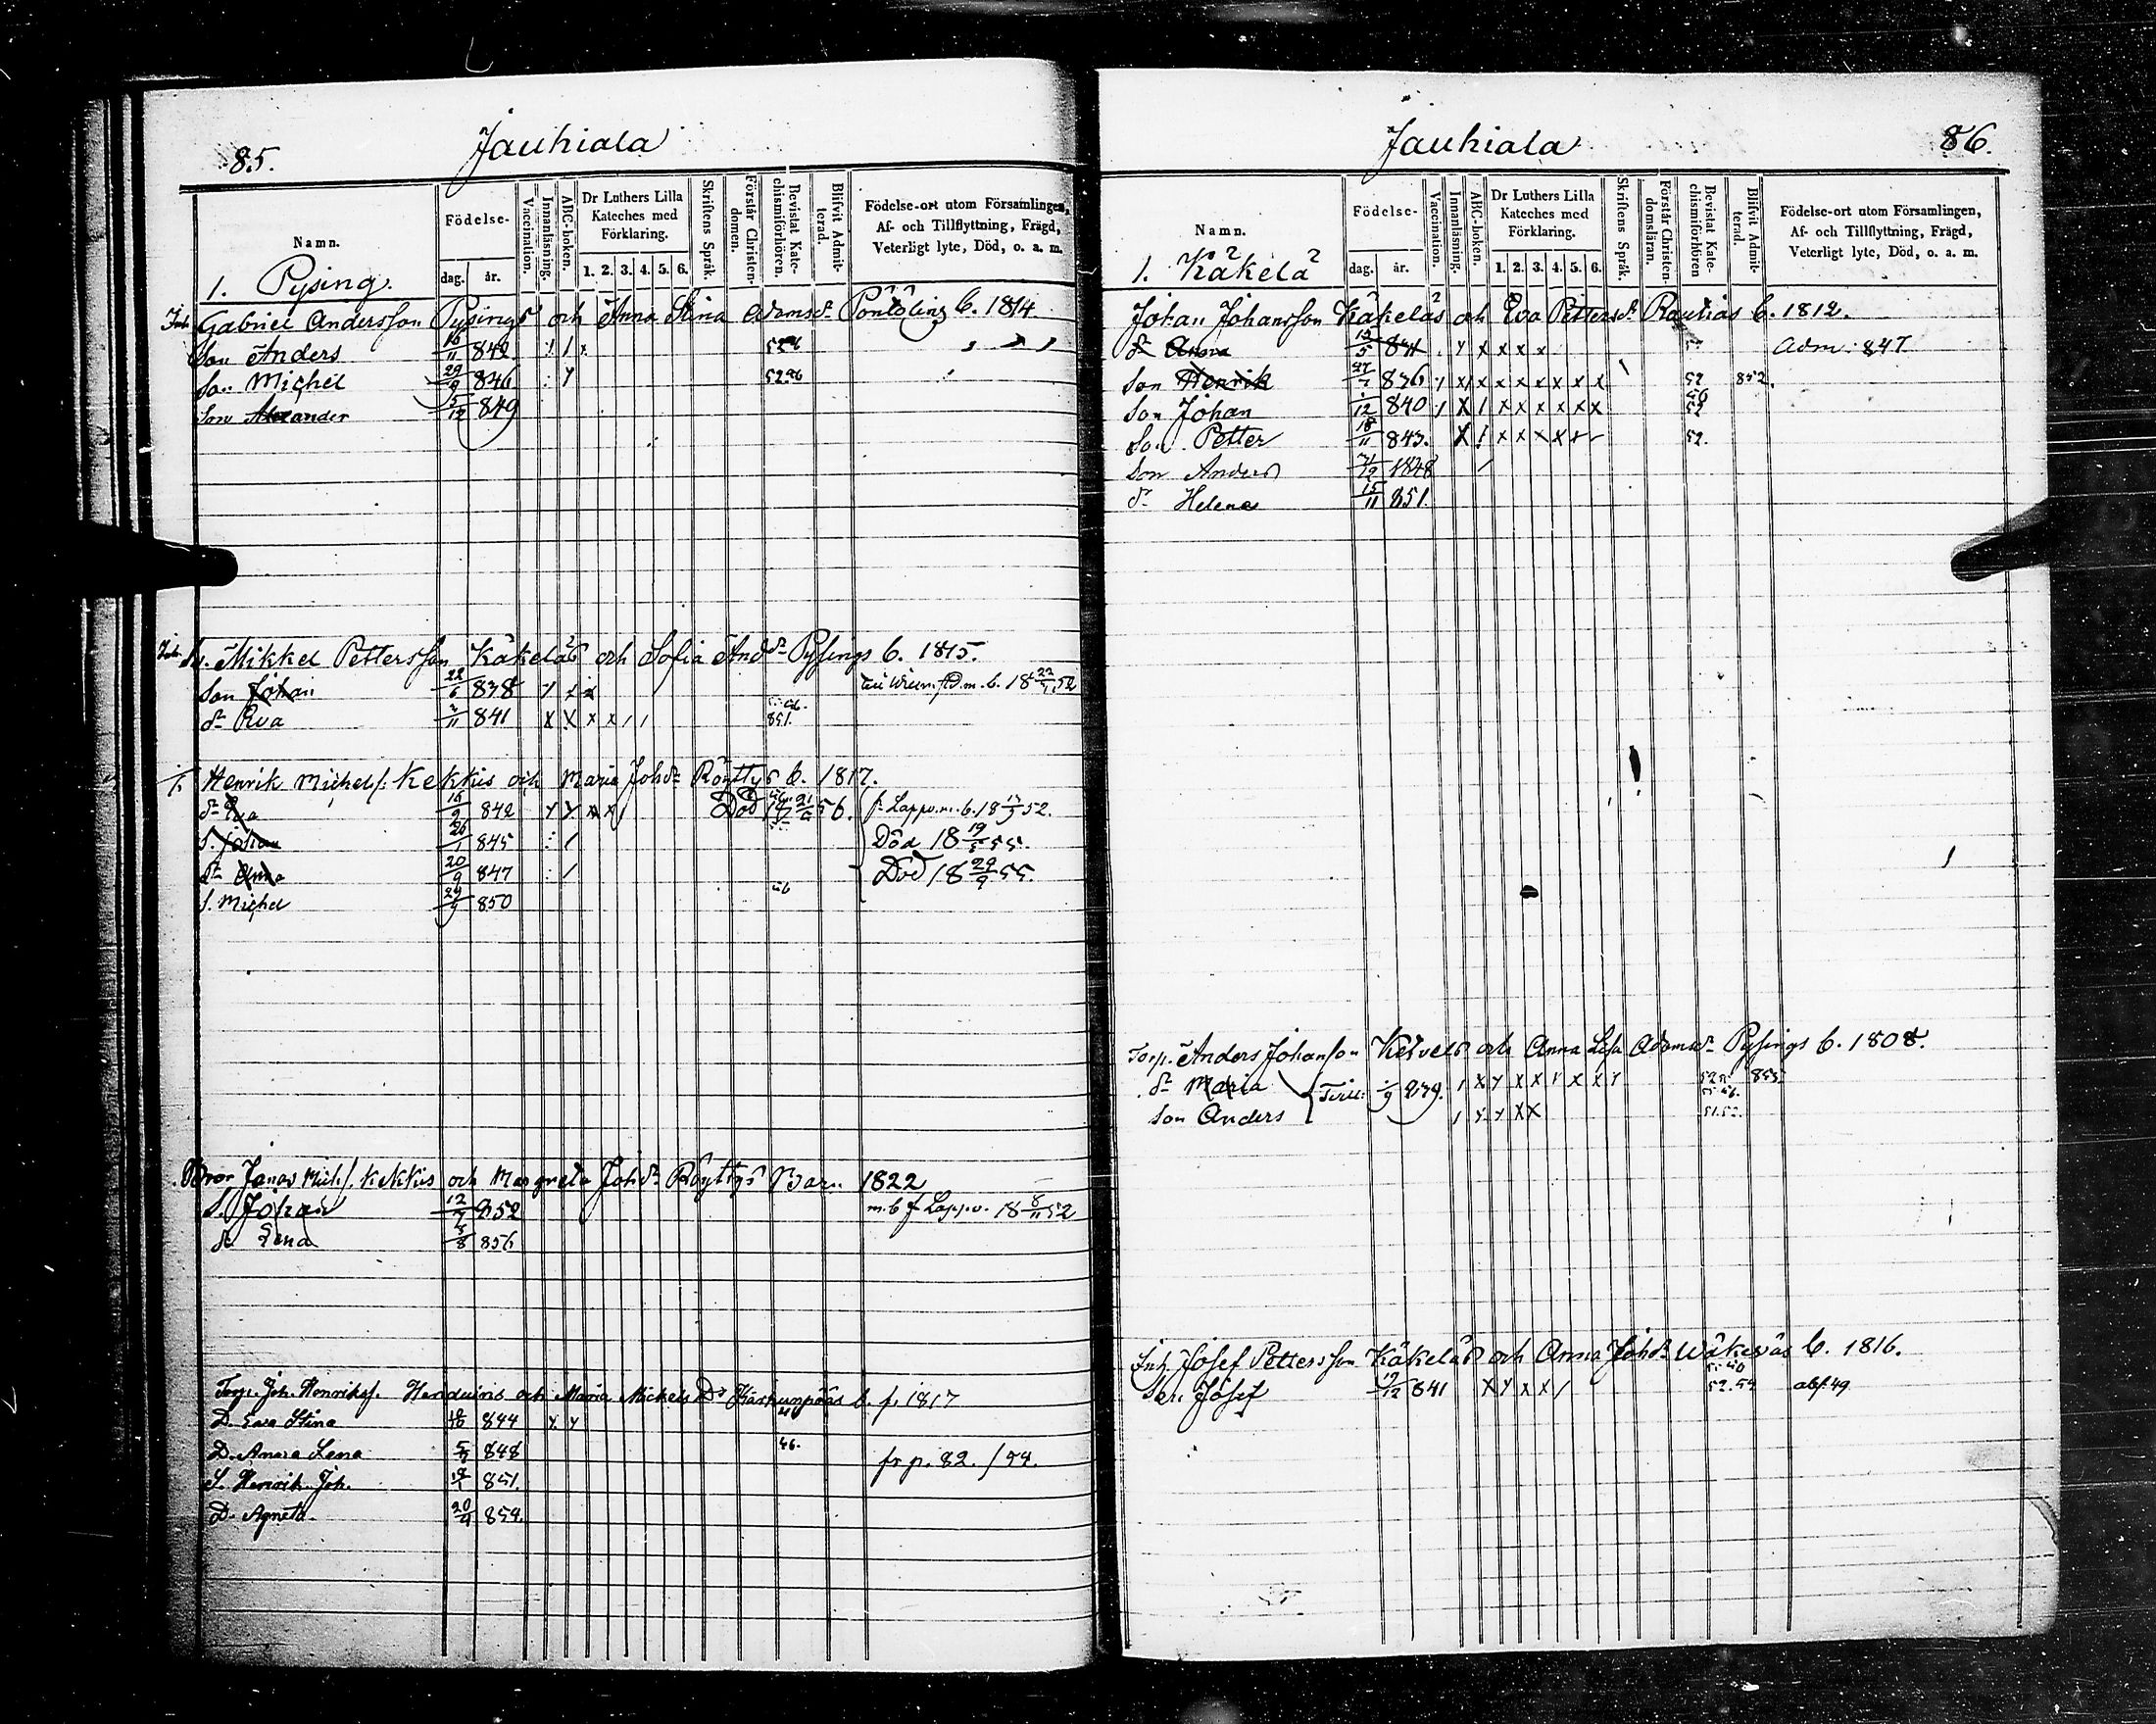 85. Jauhiala
Namn. Födelse- dag. år. Vaccination. Innanläsning. ABC-boken. Dr Luthers Lilla Kateches med Förklaring. 1. 2. 3. 4. 5. 6. Skriftens Språk. Förstår Christendomen. Bevistat Katechismiförhören. Blifvit Admitterad. Födelse-ort utom Församlingen, Af- och Tillflyttning, Frägd, Veterligt lyte, Död, o. a. m.
1. Pysing.
Gabriel Andersson Pysings och Anna Stina Adamsdr b. 1814.
Son Anders 16/11 842
Son Michel 29/9 846
Son Alexander 5/12 849
Mikkel Pettersson Käkeläs och Sofia Andsdr Pysings b. 1815.
Son Johan 22/6 838
dr Eva 841 851.
Henrik Michelss. Kekkis och Maria Johdr Röyttys b. 1817.
dr Eva 16/9 842 Död 56. fr Lappv. m. b. 18 52.
S. Johan 26/1 845 Död 18 19/5 55.
dr Anna 20/9 847 Död 18 29/9 55.
S. Michel 29/9 850 56
Bror Jonas Michs. Kekkis och Margreta Johdr Röyttys Barn 1822
S. Johan 12/7 852 m. b. f. Lappv. 18 8/11 52
dr Lena 8/8 856
Torp. Joh. Henrikss. och Maria Michels Dr b. f. 1817
D. Eva Stina 844
D. Anna Lena 848 56. fr p. 82. / 54.
S. Henrik Joh. 851.
D. Agneta 20/9 854.
Jauhiala 86.
Namn. Födelse- dag. år. Vaccination. Innanläsning. ABC-boken. Dr Luthers Lilla Kateches med Förklaring. 1. 2. 3. 4. 5. 6. Skriftens Språk. Förstår Christendomsläran. Bevistat Katechismiförhören Blifvit Admitterad. Födelse-ort utom Församlingen, Af- och Tillflyttning, Frägd, Veterligt lyte, Död, o. a. m.
1. Käkelä
Johan Johansson Käkeläs och Eva Pettersdr Rauhias b. 1812.
dr Anna Adm: 847
Son Henrik 27/7 836 52 852.
Son Johan 12 840 56 52
Son Petter 18/11 843. 52.
Son Anders 1848
dr Helena 15/11 851.
Torp. Anders Johansson Ketvels och Anna Lisa Adamsdr Pysings b. 1808.
dr Maria Tvill: 9 839. 855
Son Anders 51.52.
Inh. Josef Pettersson Käkeläs och Anna Johdr Wäkeväs b. 1816.
Son Josef 12 841 52.54 abs. 49